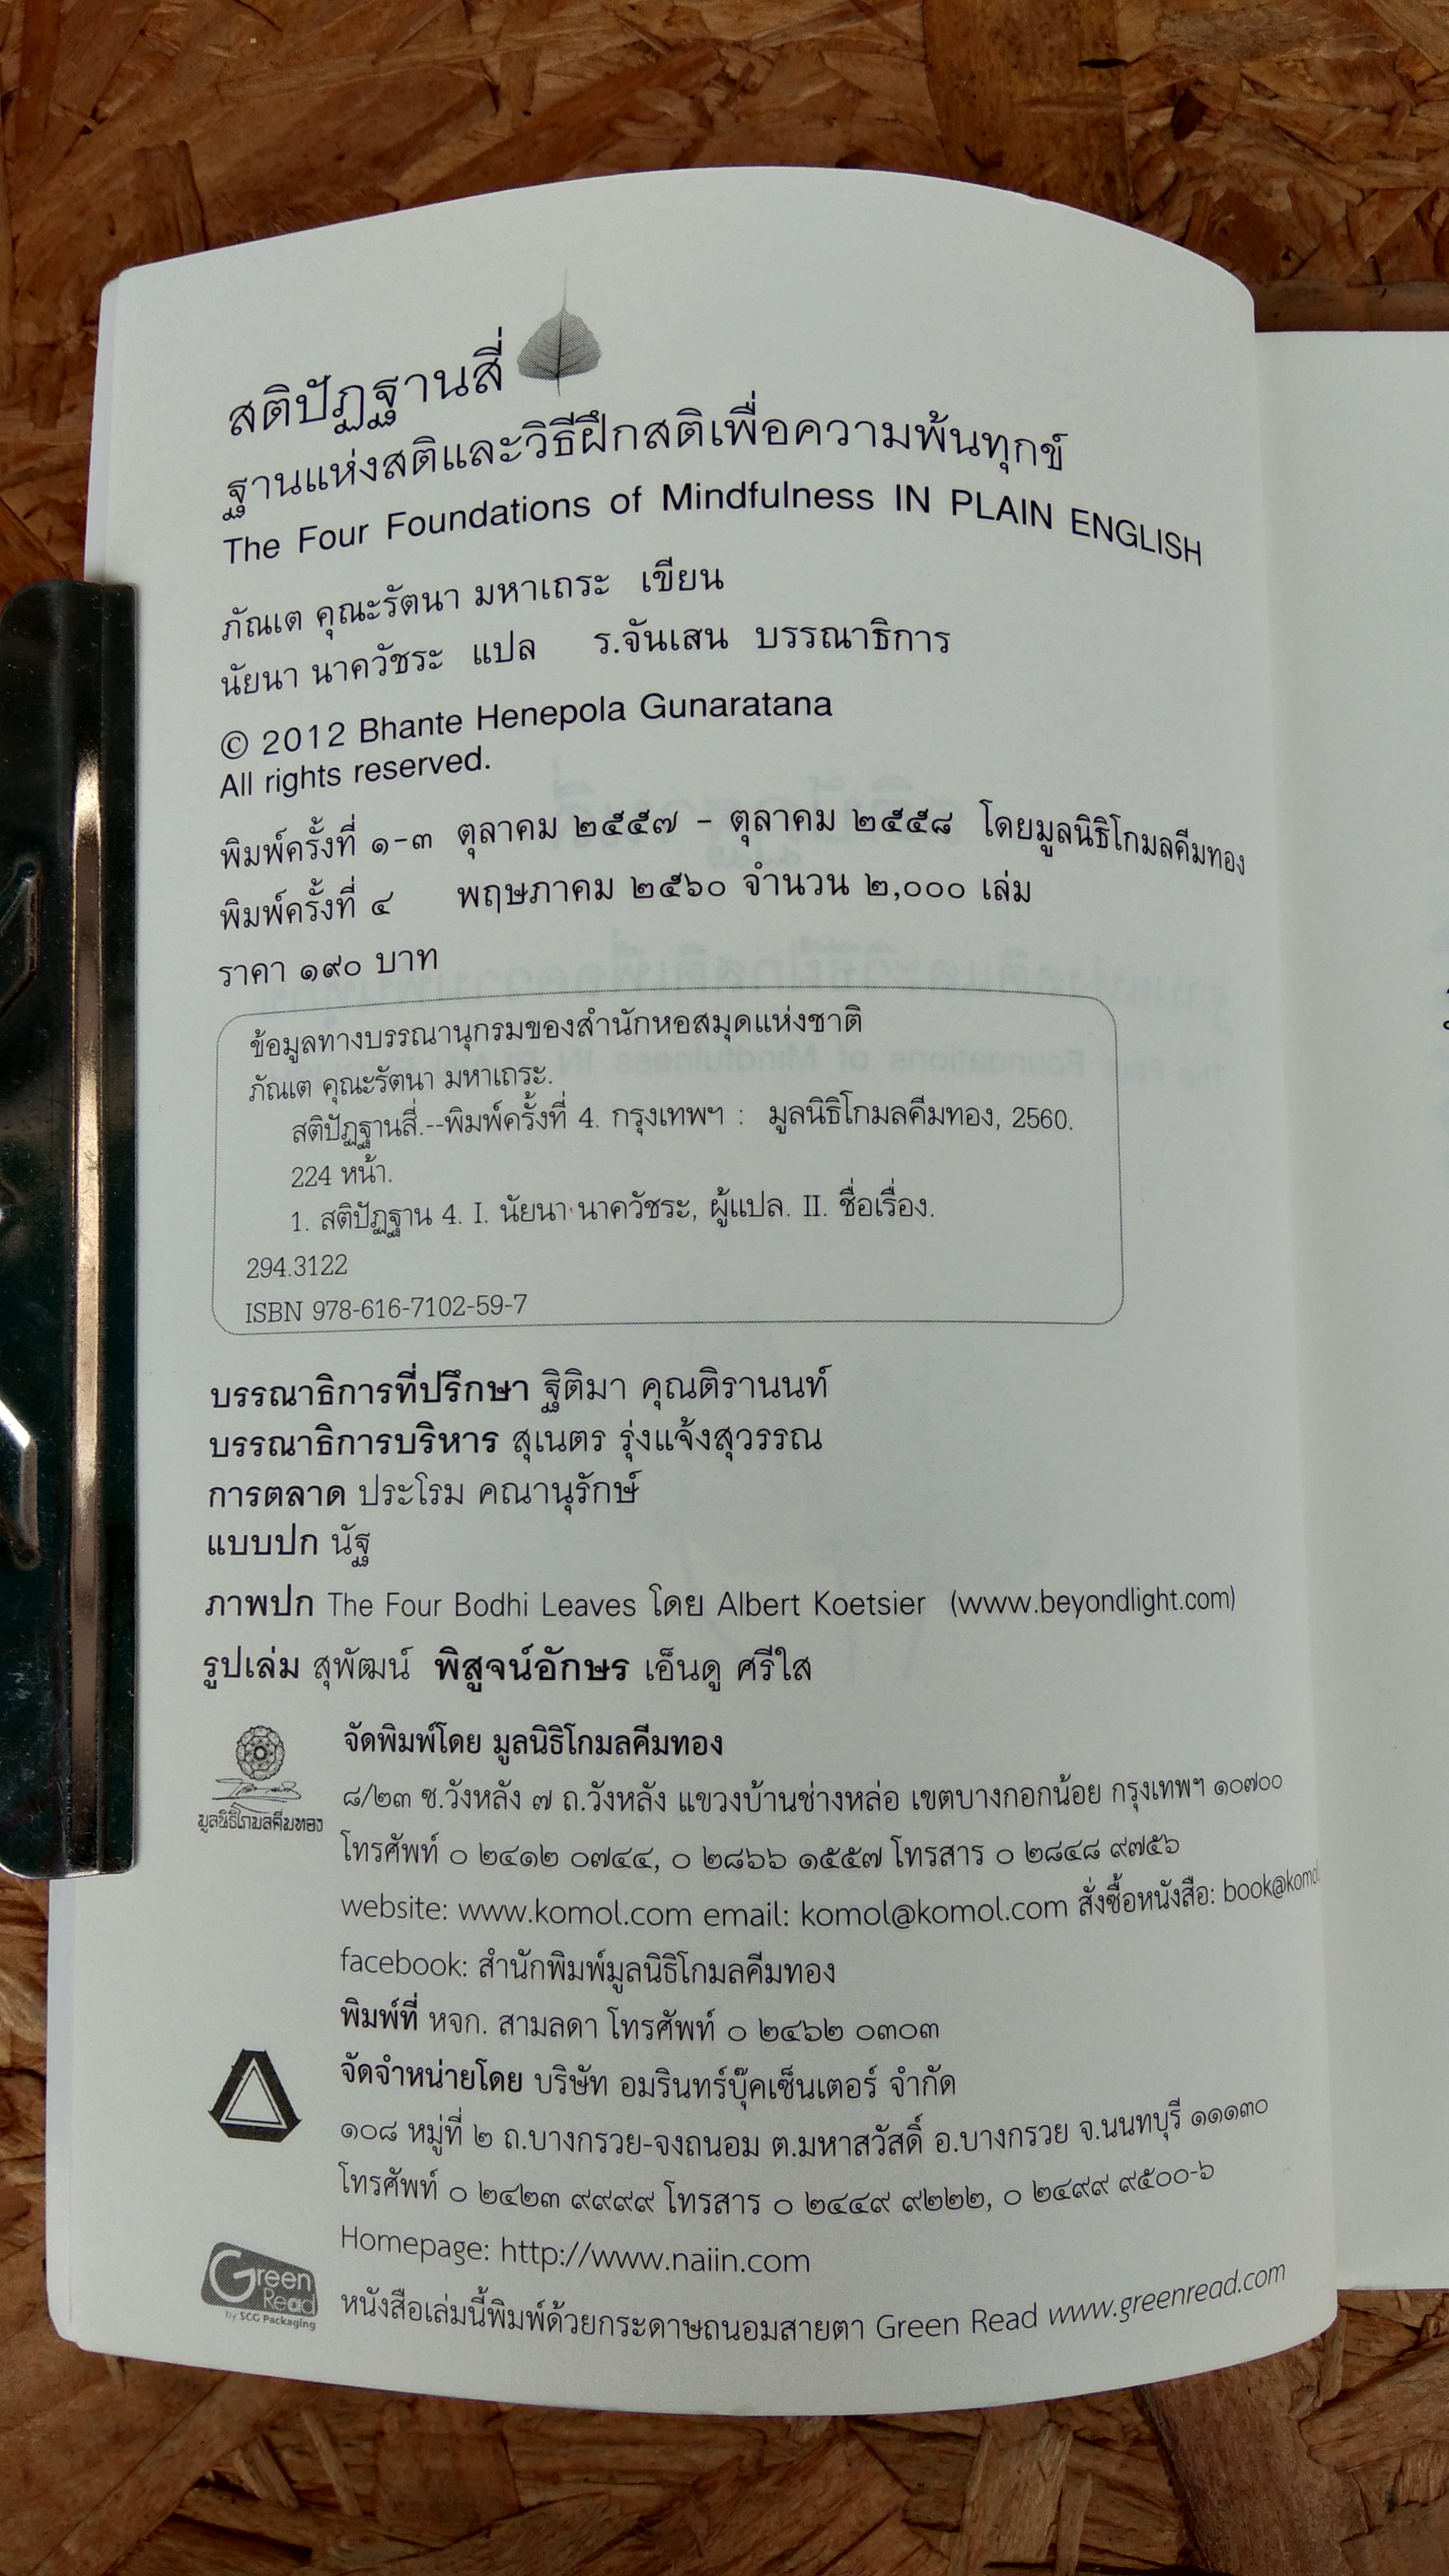 สติปัฏฐานสี่
ฐานแห่งสติและวิธีฝึกสติเพื่อความพ้นทุกข์
The Four Foundations of Mindfulness IN PLAIN ENGLISH
ภัณเต คุณะรัตนา มหาเถระ เขียน
นัยนา นาควัชระ แปล ร.จันเสน บรรณาธิการ
© 2012 Bhante Henepola Gunaratana
All rights reserved.
พิมพ์ครั้งที่ ๑-๓ ตุลาคม ๒๕๕๗ - ตุลาคม ๒๕๕๘ โดยมูลนิธิโกมลคีมทอง
พิมพ์ครั้งที่ ๔ พฤษภาคม ๒๕๖๐ จำนวน ๒,๐๐๐ เล่ม
ราคา ๑๙๐ บาท
ข้อมูลทางบรรณานุกรมของสำนักหอสมุดแห่งชาติ
ภัณเต คุณะรัตนา มหาเถระ.
สติปัฏฐานสี่.--พิมพ์ครั้งที่ 4. กรุงเทพฯ : มูลนิธิโกมลคีมทอง, 2560.
224 หน้า.
1. สติปัฏฐาน 4. I. นัยนา นาควัชระ, ผู้แปล. II. ชื่อเรื่อง.
294.3122
ISBN 978-616-7102-59-7
บรรณาธิการที่ปรึกษา ฐิติมา คุณติรานนท์
บรรณาธิการบริหาร สุเนตร รุ่งแจ้งสุวรรณ
การตลาด ประโรม คณานุรักษ์
แบบปก นัฐ
ภาพปก The Four Bodhi Leaves โดย Albert Koetsier (www.beyondlight.com)
รูปเล่ม สุพัฒน์ พิสูจน์อักษร เอ็นดู ศรีใส
มูลนิธิโกมลคีมทอง
จัดพิมพ์โดย มูลนิธิโกมลคีมทอง
๘/๒๓ ซ.วังหลัง ๗ ถ.วังหลัง แขวงบ้านช่างหล่อ เขตบางกอกน้อย กรุงเทพฯ ๑๐๗๐๐
โทรศัพท์ ๐ ๒๔๑๒ ๐๗๔๔, ๐ ๒๘๖๖ ๑๕๕๗ โทรสาร ๐ ๒๘๔๘ ๙๗๕๖
website: www.komol.com email: komol@komol.com สั่งซื้อหนังสือ: book@komol
facebook: สำนักพิมพ์มูลนิธิโกมลคีมทอง
พิมพ์ที่ หจก. สามลดา โทรศัพท์ ๐ ๒๔๖๒ ๐๓๐๓
จัดจำหน่ายโดย บริษัท อมรินทร์บุ๊คเซ็นเตอร์ จำกัด
๑๐๘ หมู่ที่ ๒ ถ.บางกรวย-จงถนอม ต.มหาสวัสดิ์ อ.บางกรวย จ.นนทบุรี ๑๑๑๓๐
โทรศัพท์ ๐ ๒๔๒๓ ๙๙๙๙ โทรสาร ๐ ๒๔๔๙ ๙๒๒๒, ๐ ๒๔๙๙ ๙๕๐๐-๖
Homepage: http://www.naiin.com
Green Read
by SCG Packaging
หนังสือเล่มนี้พิมพ์ด้วยกระดาษถนอมสายตา Green Read www.greenread.com